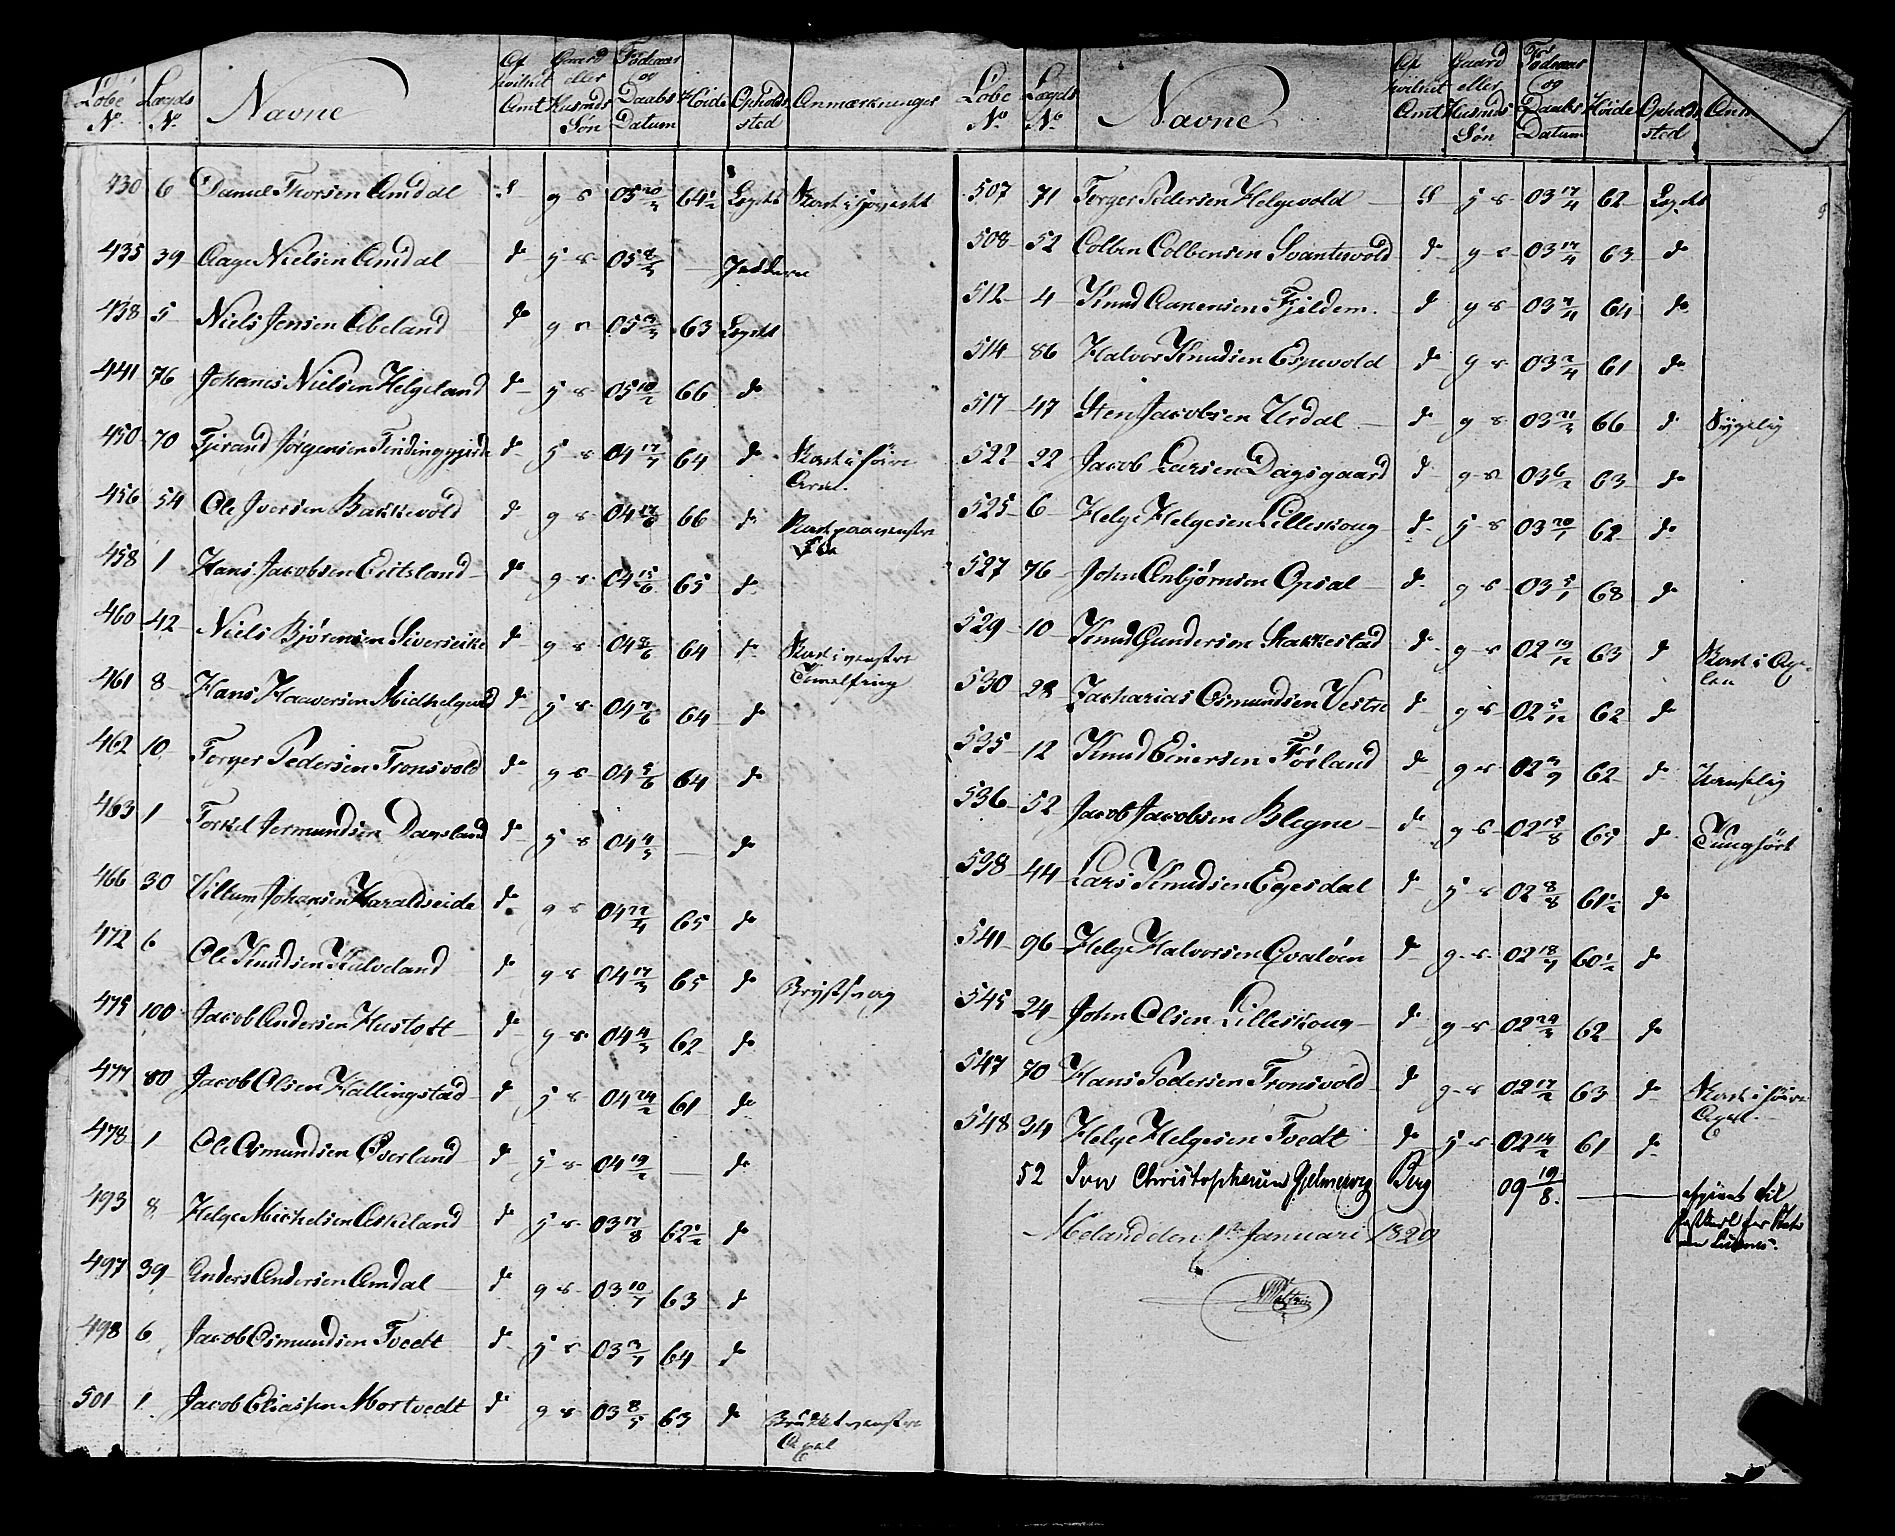 Løbe No. Lægds No. Navne Af hvilket Amt Gaard eller Husmds Søn Fødeaar og Daabs Datum Høide Opholds sted Anmærkninger
430 6 Daniel Thorsen Amdal S g s 05 20/3 64 1/2 Lægdet
435 39 Aage Nielsen Amdal do j s 05 Jeddern
438 5 Niels Jensen Abeland do g s 05 63 Lægdet
441 76 Johanes Nielsen Helgeland do j s 05 10/2 66 do
450 70 Tjerand Jørgensen do j s 04 17/7 64 do Skade i høire Arm
456 54 Ole Iversen Bakkevold do g s 04 17/6 66 do Skade paa venstre
458 1 Hans Jacobsen Eitsland do g s 04 15/6 65 do
460 42 Niels Bjørensen Siverseike do g s 04 8/6 64 do Skade i venstre Tomelfing
461 8 Hans Haaversen Midhelgevold do j s 04 7/6 64 do
462 10 Torger Pedersen Tronsvold do g s 04 5/6 64 do
463 1 Torkel Jermundsen Dansland do j s 04 — do
466 30 Villum Johansen Haraldseide do g s 04 22/4 65 do
472 6 Ole Knudsen Kulveland do g s 04 17/3 65 do Brystsvag
475 100 Jacob Andersen Hustoft do g s 04 4/3 62 do
477 80 Jacob Olsen Hallingstad do j s 04 24/2 61 do
478 1 Ole Osmundsen Øverland do j s 04 19/2 — do
493 8 Helge Michelsen Askeland do j s 03 17/8 62 1/2 do
497 39 Anders Andersen Amdal do g s 03 10/7 63 do
498 6 Jacob Osmundsen Tvedt do j s 03 3/7 64 do
501 1 Jacob Eliassen Mortvedt do g s 03 8/5 63 do Brukket venstre Axel
Løbe No. Lægds No. Navne Af hvilket Amt Gaard eller Husmds Søn Fødeaar og Daabs Datum Høide Opholds sted Anm
507 71 Torger Pedersen Helgevold S j s 03 17/4 62 Lægdet
508 52 Colben Colbensen Svantesvold do g s 03 17/4 63 do
512 4 Knud Aanensen Fjeldem do g s 03 7/4 64 do
514 86 Halvor Knudsen Espevold do g s 03 2/4 61 do
517 47 Sten Jacobsen Urdal do g s 03 21/3 66 do Sygelig
522 22 Jacob Larsen Dagsgaard do g s 03 6/2 63 do
525 6 Helge Helgesen Lilleskoug do j s 03 20/1 62 do
527 76 John Anbjørnsen Opsal do g s 03 5/1 68 do
529 10 Knud Gundersen Stakkestad do g s 02 19/12 63 do Skade i Axelen
530 28 Zacharias Osmundsen Vestre do g s 02 5/12 62 do
535 12 Knud Einersen Førland do g s 02 3/9 62 do Svanselig
536 52 Jacob Jacobsen Blegne do g s 02 15/8 65 do Tunghørt
538 44 Lars Knudsen Egesdal do j s 02 8/8 61 1/2 do
541 96 Helge Halvorsen Qvaløen do g s 02 18/7 60 1/2 do
545 24 John Olsen Lilleskoug do g s 02 29/3 62 do
547 70 Hans Pedersen Tronsvold do g s 02 17/2 63 do Skade i høire Axel
548 34 Helge Helgesen Tvedt do j s 02 14/2 61 do
52 Iver Christophersen Hjelmeveg Berg 09 19/8 — afgivet til
Meland den 1ste Januari 1829